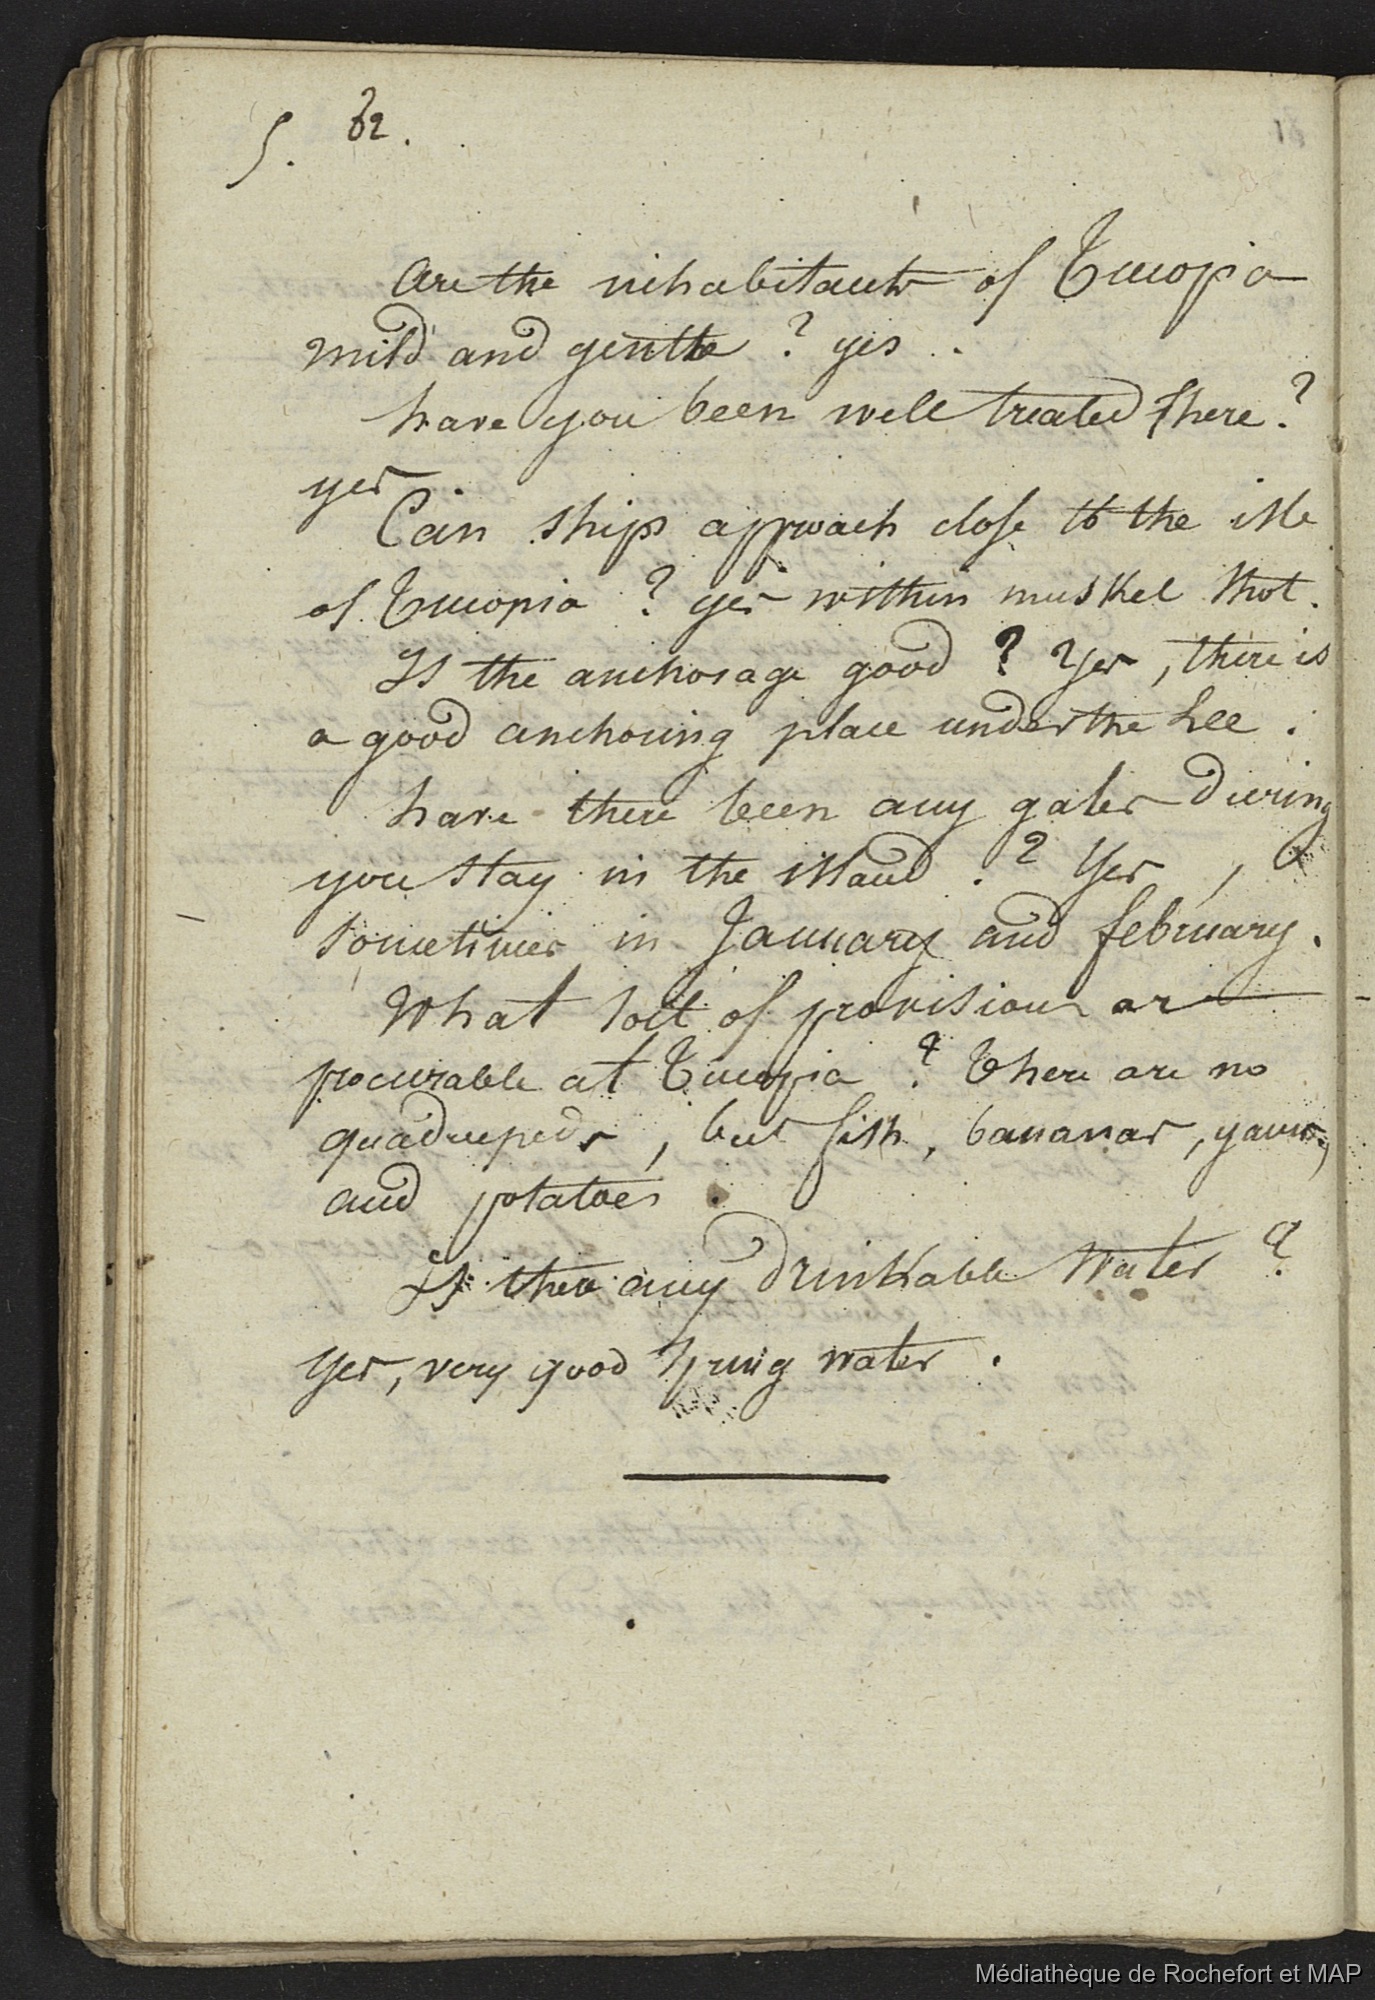 5. 82.
Are the inhabitants of Tucopia
mild and gentle ? yes .
have you been well treated there ?
yes .
Can ships approach close to the isle
of Tucopia ? yes within musket shot .
Is the anchorage good ? Yes , there is
a good anchoring place under the Lee .
have there been any gales during
you stay in the island . ? Yes ,
sometimes in January and february .
What sort of provisions are
procurable at Tucopia ? There are no
quadrupeds , but fish , bananas , yams ,
and potatoes .
Is there any drinkable Water ?
Yes , very good spring water .
Médiathèque de Rochefort et MAP